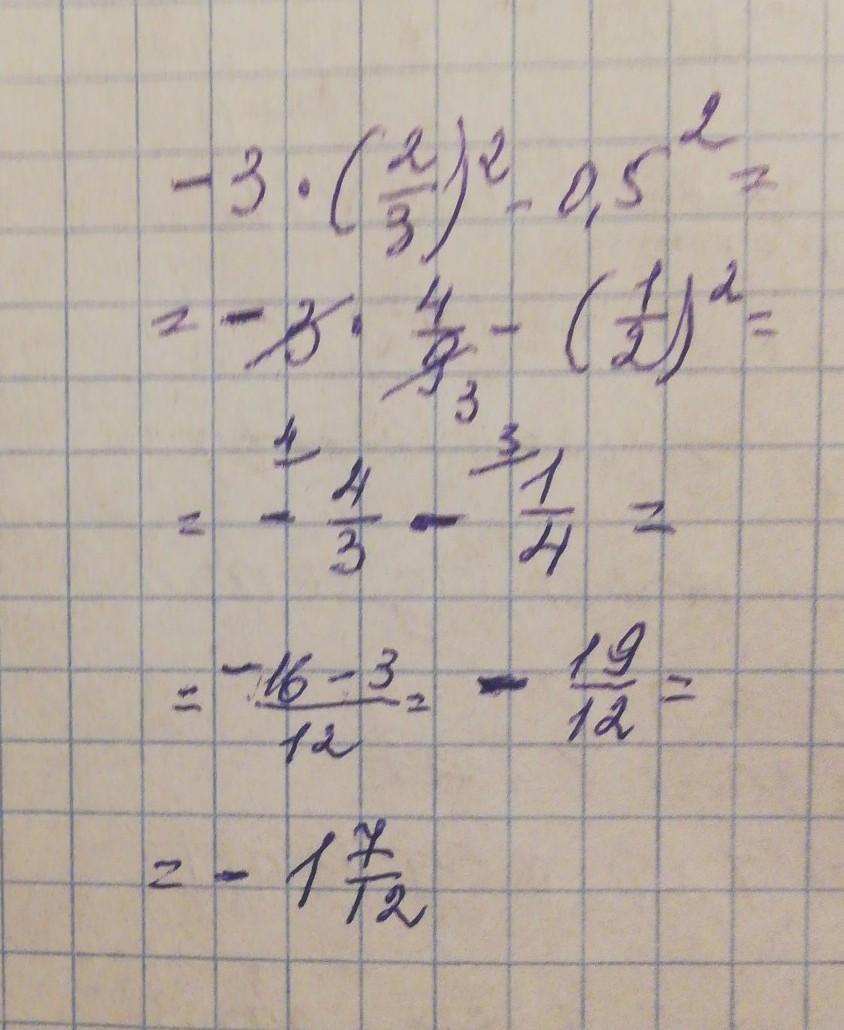 -3 · (2/3)² - 0,5² =
= - 3 · 4/9 3 - (1/2)² =
= - 4/ 4/3 - 3/ 1/4 =
= -16 - 3/12 = - 19/12 =
= - 1 7/12